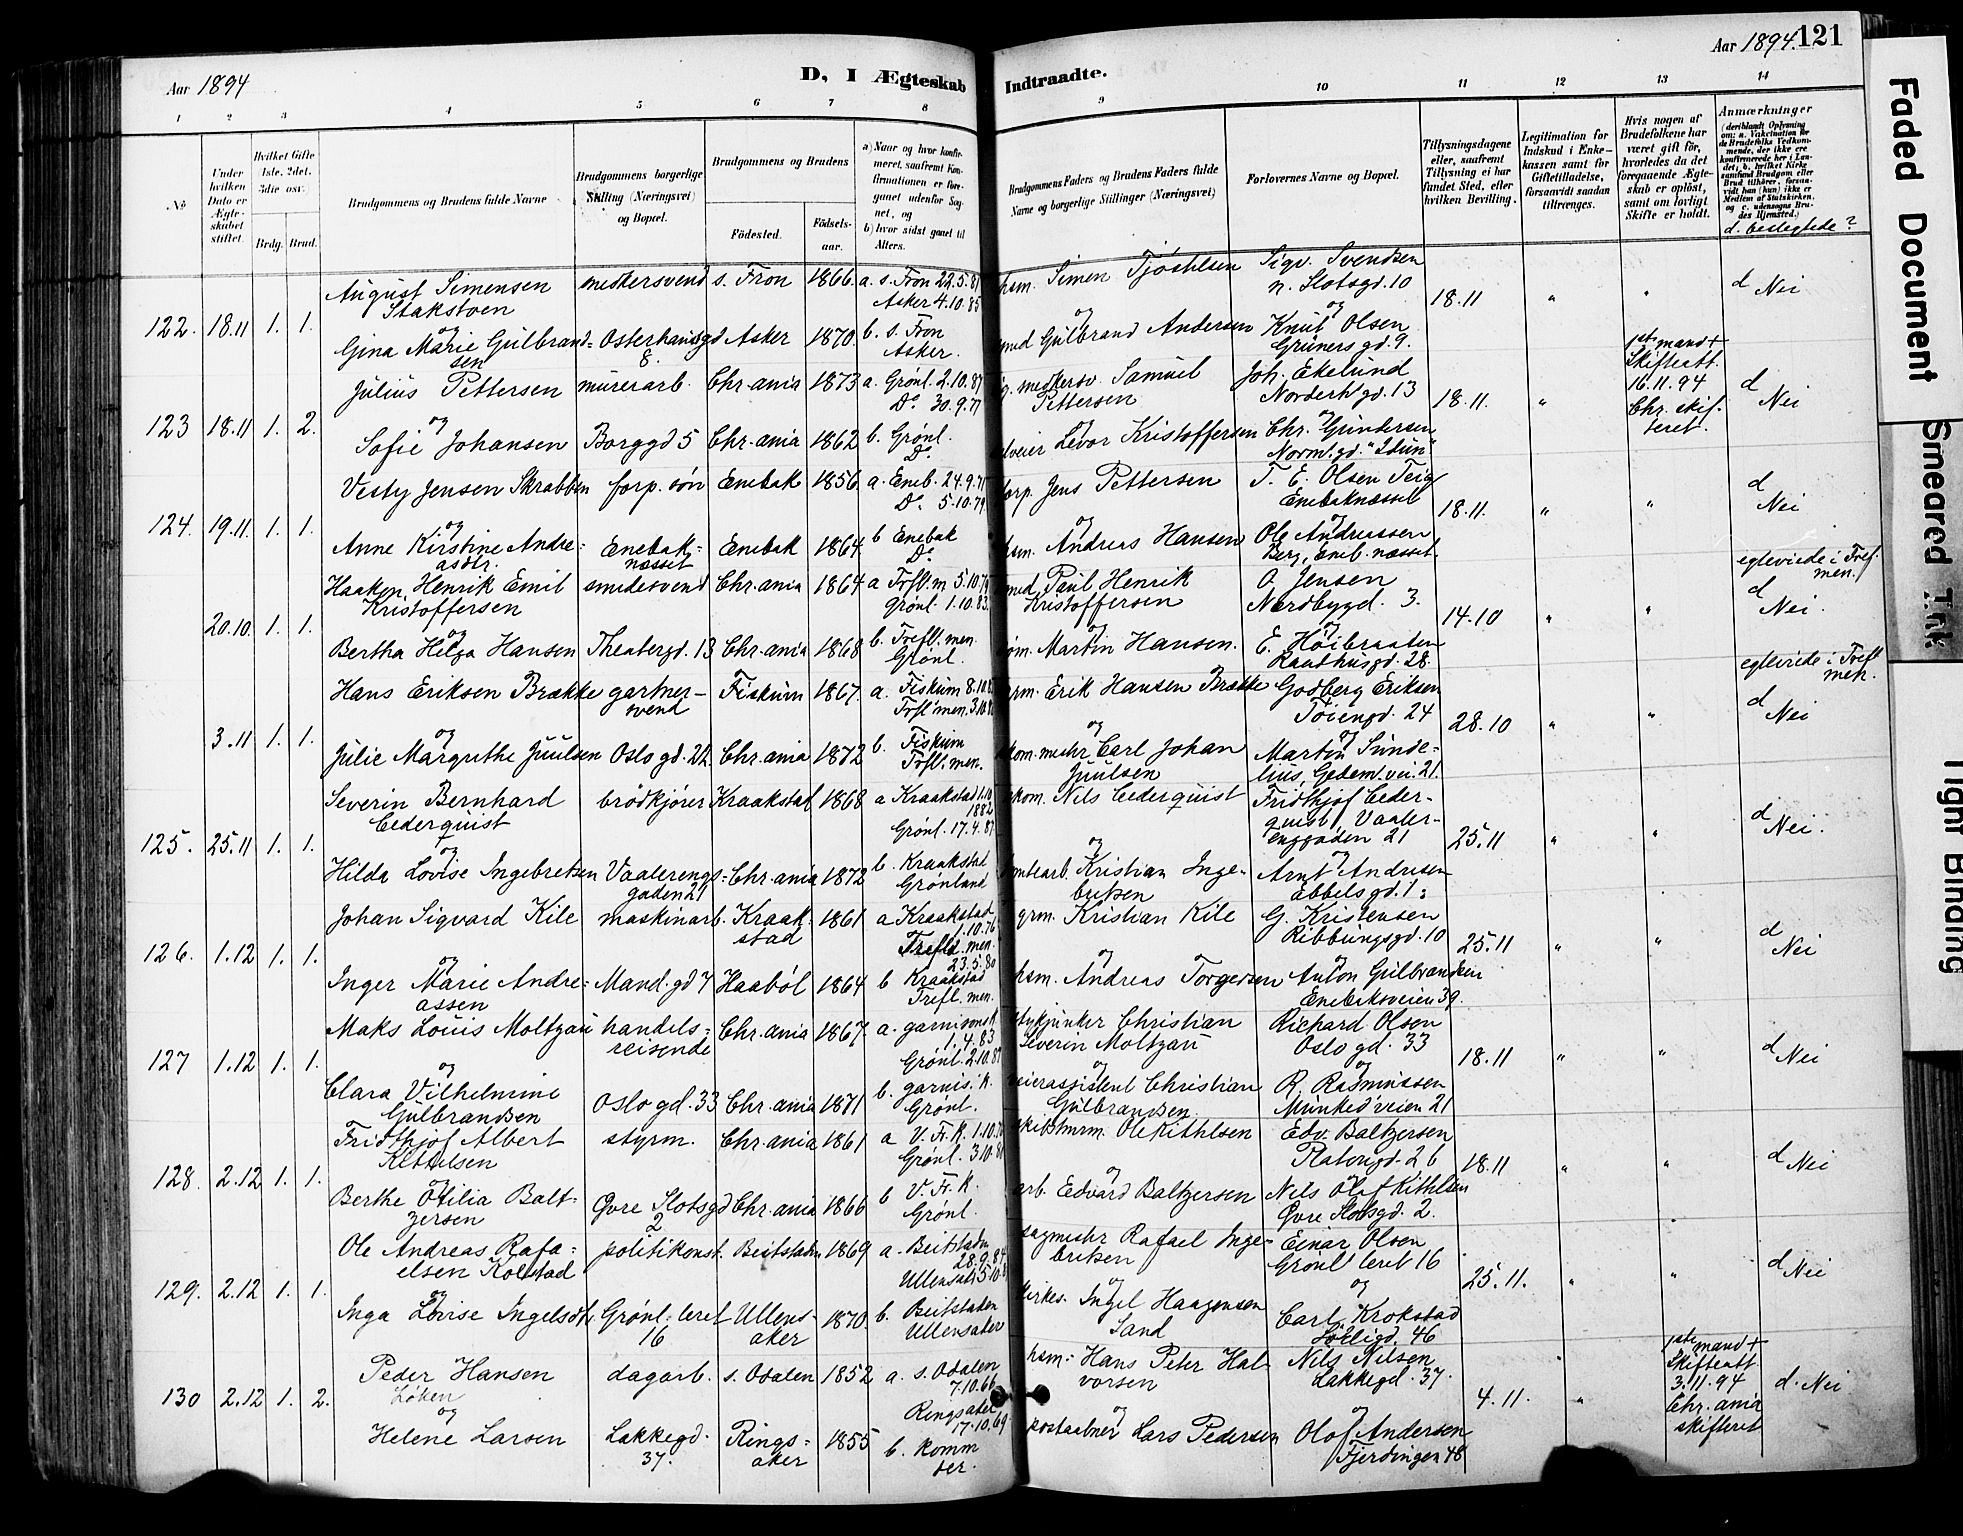 Aar 1894
D, I Ægteskab Indtraadte.
Aar 1894. 121
1 2 3 4 5 6 7 8 9 10 11 12 13 14
No
Under hvilken Dato er Ægteskabet stiftet.
Hvilket Gifte 1ste, 2det, 3die osv.
Brdg. Brud.
Brudgommens og Brudens fulde Navne
Brudgommens borgerlige Stilling (Næringsvei) og Bopæl.
Brudgommens og Brudens
Fødested. Fødselsaar.
a) Naar og hvor konfirmeret, saafremt Konfirmationen er foregaaet udenfor Sognet, og
b) hvor sidst gaaet til Alters.
Brudgommens Faders og Brudens Faders fulde Navne og borgerlige Stillinger (Næringsvei)
Forlovernes Navne og Bopæl.
Tillysningsdagene eller, saafremt Tillysning ei har fundet Sted, efter hvilken Bevilling.
Legitimation for Indskud i Enkekassen samt for Giftetilladelse, forsaavidt saadan tiltrænges.
Hvis nogen af Brudefolkene har været gift før, hvorledes da det foregaaende Ægteskab er opløst, samt om lovligt Skifte er holdt.
Anmærkninger
d. beslegtede?
August Simensen Stakstoen medkersvend s. Fron 1866. a. s. Fron 22.5.81 Asker 4.10.85
hsm. Simen Tjøstelsen Sigv. Svendsen n. Slotsgd. 10
122. 18.11 1. 1. og 18.11 " " d Nei
Gina Marie Gulbrandsen Osterhausgd 8. Asker 1870. b. s. Fron Asker.
smed Gulbrand Andersen Knut Olsen Grünersgd. 9.
Julius Pettersen murerarb. Chr.ania 1873 a. Grønl. 2.10.87 Do. 30.9.77
medkersv. Samuel Pettersen Joh. Ekelund Norderhgd. 13
123 18.11 1. 2. og 18.11. " 1ste mand + Skifteatt. 16.11.94 Chr. skifteret. d Nei
Sofie Johansen Borggd 5 Chr.ania 1862 b. Grønl. Do.
Levor Kristoffersen Chr. Gundersen Norm.gd. "Idun"
Vesty Jensen Skrabben forp. søn Enebak 1856. a. Eneb. 24.9.71 Do. 5.10.79
forp. Jens Pettersen T. E. Olsen Teig Enebaknesset
124. 19.11. 1. 1. og 18.11. " " d Nei
Anne Kirstine Andreasdtr. Enebaknæsset Enebak 1864. b Enebak Do.
hsm. Andreas Hansen Ole Andreassen Berg, Eneb. næsset
Haaken Henrik Emil Kristoffersen smedesvend Chr.ania 1864 a Trfl.m 5.10.79 Grønl. 1.10.83.
smed Paul Henrik Kristoffersen O. Jensen Nordbygd. 3.
20.10. 1. 1. og 14.10 " " egteviede i Tref. men. d Nei.
Bertha Helga Hansen Theatergd. 13 Chr.ania 1868 b. Trefl. men. Grønl.
Martin Hansen. E. Høibraaten Raadhusgd. 28.
Hans Eriksen Brække gartnersvend Fiskum 1867. a. Fiskum 8.10.82 Trfl men. 3.10.86
grm. Erik Hansen Brække Godberg Eriksen Tøiengd. 24
3.11 1. 1. og 28.10 " " egteviede i Trefl men. d Nei
Julie Margrethe Juulsen Oslo gd. 22. Chr.ania 1872 b. Fiskum Trfl. men.
Carl Johan Juulsen Martin Sundelius, Gedeml.vei. 21.
Severin Bernhard Cederquist brødkjører Kraakstad 1868 a Kraakstad 1.10 1882 Grønl. 17.4.87
Nils Cederquist Fridthjof Cederquist, Vaalerenggaden 21
125. 25.11 1. 1. og 25.11 " " d Nei.
Hilda Lovise Ingebretsen Vaalerengsgaden 21 Chr.ania 1872 b. Kraakstad Grønland
Kristian Ingebretsen Arnt Andresen Ebbelsgd. 1.
Johan Sigvard Kile maskinarb. Kraakstad 1861 a Kraakstad 1.10.76 Trefld. men. 23.5.80
grm. Kristian Kile G. Kristensen Ribbungsgd. 10
126. 1.12 1. 1. og 25.11 " " d Nei
Inger Marie Andreassen Mand.gd 7 Haabøl 1864 b Kraakstad Trefl. men.
hsm. Andreas Torgersen Anton Gulbrandsen Enebaksveien 39.
Maks Louis Moltzau handelsreisende Chr.ania 1867. a. garnisonsk. 1.4.83 Grønl. 2.10.87
stykjunker Christian Severin Moltzau Richard Olsen Oslo gd. 33
127 1.12 1. 1. og 18.11 " " d Nei
Clara Vilhelmine Gulbrandsen Oslo gd. 33 Chr.ania 1871 b. garnis. k. Grønl.
veierassistent Christian Gulbrandsen R. Rasmussen Munkedveien 21
Fridthjof Albert Kittelsen styrm. Chr.ania 1861 a V. Fr. K. 1.10.76 Grønl. 3.10.80
skibstmrm. Ole Kithlsen Edv. Baltzersen Platougd. 26
128. 2.12 1. 1. og 18.11 " " d Nei
Berthe Otilia Baltzersen Øvre Slotsgd 2 Chr.ania 1866 b V. Fr. K. Grønl.
arb. Edvard Baltzersen Nils Olaf Kithlsen Øvre Slotsgd. 2.
Ole Andreas Rafaelsen Kolstad politikonst. Beitstaden 1869 a. Beitstaden 28.9.84 Ullensaker 5.10.
sagmestr Rafael Ingebrigtsen Einar Olsen Grønl leret 16
129. 2.12 1. 1. og 25.11. " " d Nei
Inga Lovise Ingelsdtr. Grønl. leret 16 Ullensaker 1870. b. Beitstaden Ullensaker
kirkes. Ingel Haagensen Sand Carl Krokstad Sørligd. 46
Peder Hansen Løken dagarb. s. Odalen 1852 a. s. Odalen 7.10.66 Ringsaker 17.10.69
hsm. Hans Peter Halvorsen Nils Nilsen Lakkegd. 37.
130 2.12 1. 2. og 4.11. " 1ste mand + Skifteatt 3.11.94 Chr.ania skifteret d. Nei
Helene Larsen Lakkegd. 37. Ringsaker 1855 b. kommer.
postaabner Lars Pedersen Olof Andersen Fjerdingen 48
Faded Document
Smeared Ink
Tight Binding